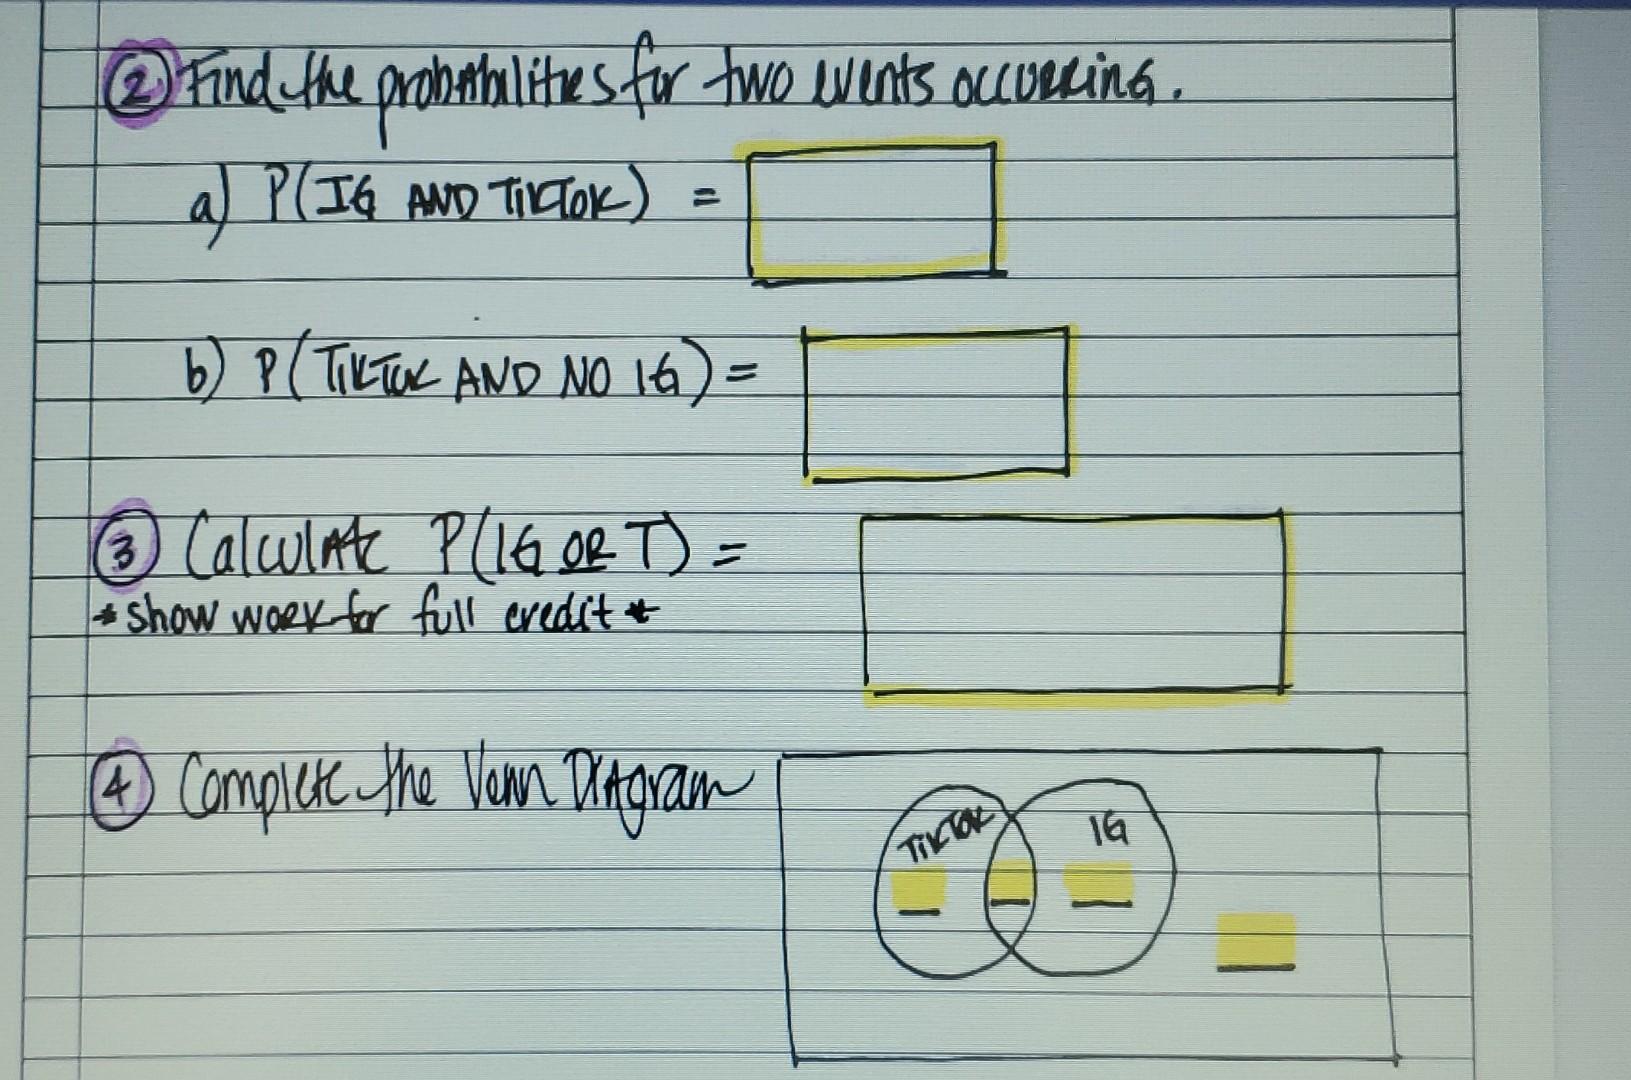 ② Find the probabilities for two events occurring.
a) P(IG AND TIKTOK) =
b) P(TIKTOK AND NO IG) =
③ Calculate P(IG OR T) =
* show work for full credit *
④ Complete the Venn Diagram
TIKTOK IG